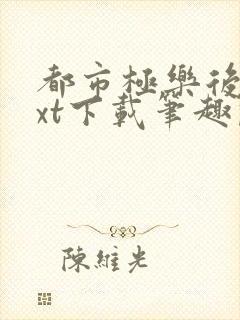 都市極樂後
xt下載筆趣
陳維光